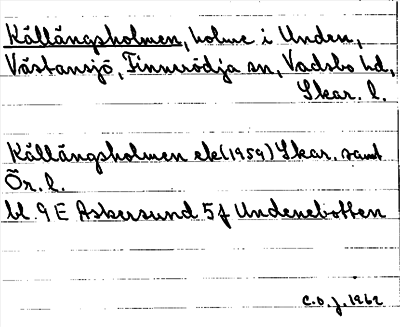 Källängsholmen, holme i Unden,
Västansjö, Finnerödja sn, Vadsbo hd,
Skar. l.
Källängsholmen ek (1959) Skar. samt
Ör. l.
bl. 9 E Askersund 5f Undenebotten
C.O.J. 1962